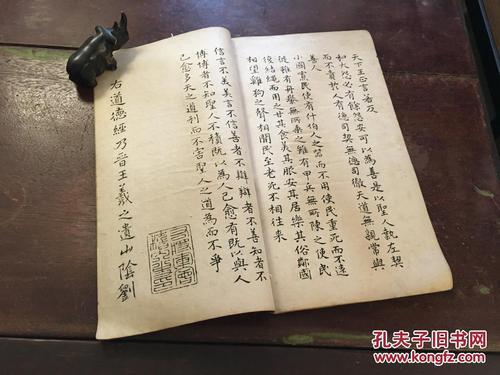 天下王正言若反
和大怨必有餘怨安可以為善是以聖人執左契
而不責於人有德司契無德司徹天道無親常與
善人
小國寡民使有什伯人之器而不用使民重死而不遠
徙雖有舟轝無所乘之雖有甲兵無所陳之使民
復結繩而用之甘其食美其服安其居樂其俗鄰國
相望雞狗之聲相聞民至老死不相往來
信言不美美言不信善者不辯辯者不善知者不
博博者不知聖人不積既以為人己愈有既以與人
己愈多天之道利而不害聖人之道為而不爭
右道德經乃晉王羲之遺山陰劉
孔夫子旧书网
www.kongfz.com